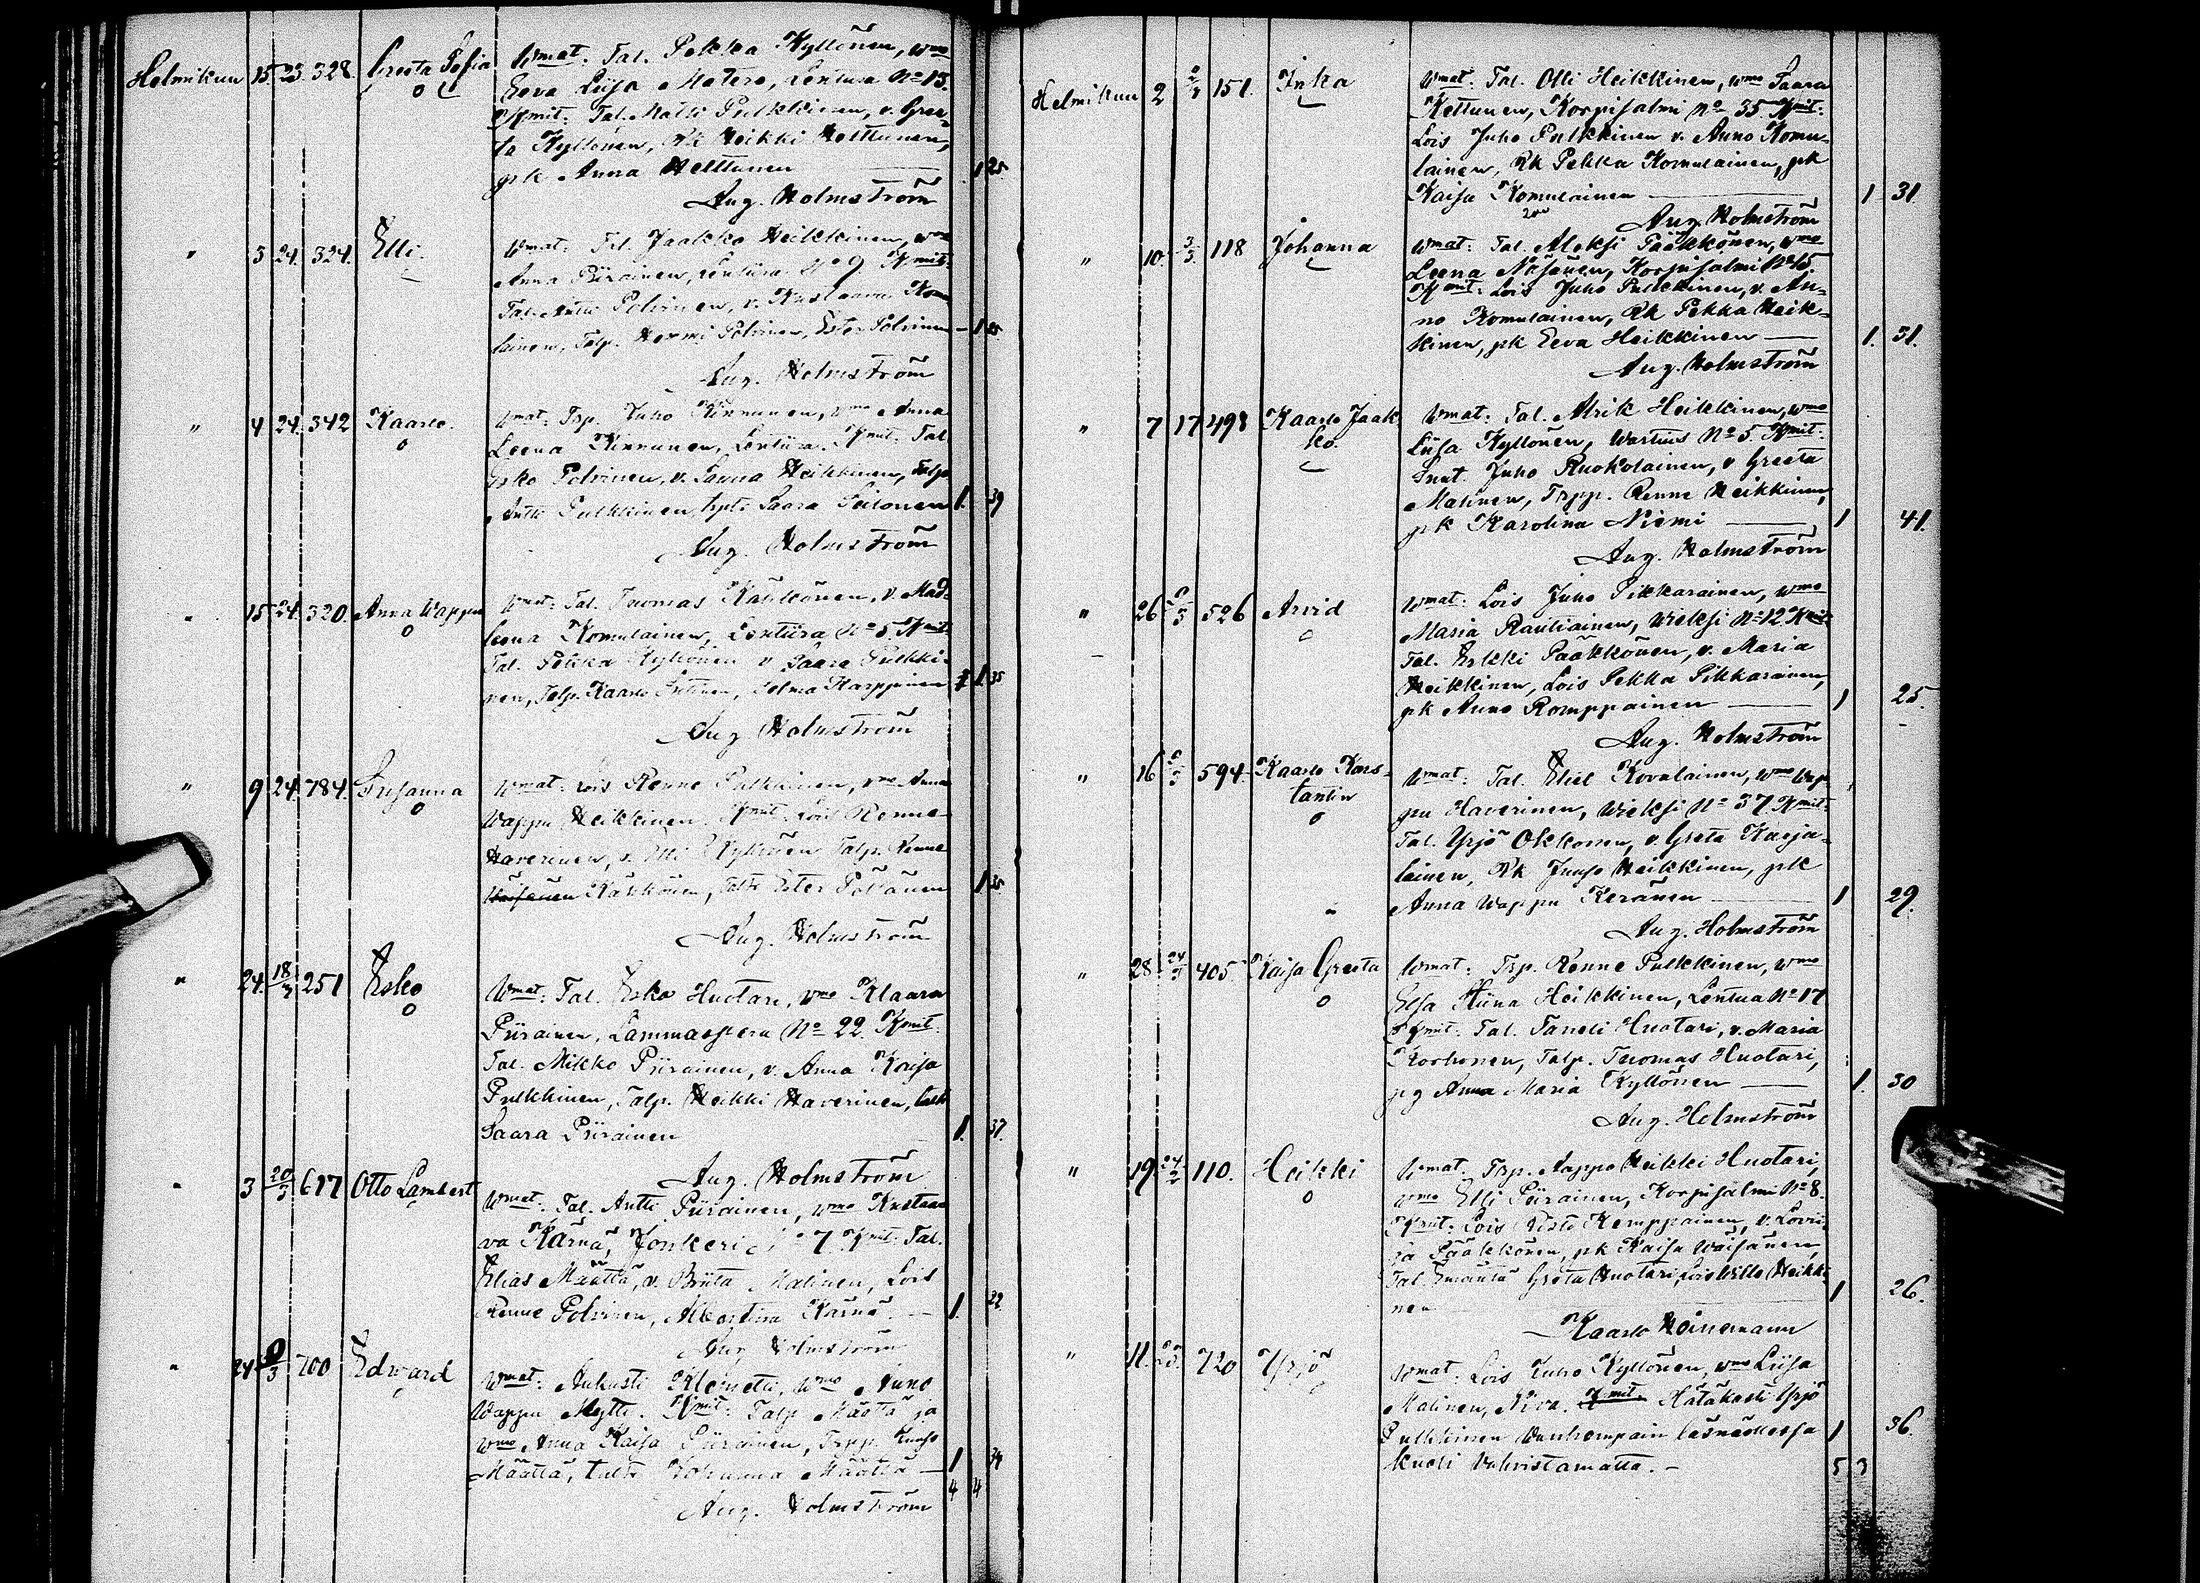 Helmikuu 15 23. 328. Greeta Sofia Wmat. Tal. Pekka Kyllönen, wmo
Eeva Liisa Matero, Lentua No 13.
Kmit. Tal. Matti Pulkkinen, v. Gree-
ta Kyllönen, Rk Heikki Helttunen,
pk Anna Helttunen 1 25
Aug. Holmström
" 3 24. 324. Elli. Wmat. Tal. Jaakko Heikkinen, wmo
Anna Piirainen, Lentiira No 9 Kmit.
Tal. Antti Polvinen, v. Kustaava Komu
lainen, Talp. Hermi Polvinen, Ester Polvinen 1
Aug. Holmström
" 4 24. 342 Kaarlo. Wmat. Trp. Juho Kinnunen, wmo Anna
Leena Kinnunen, Lentiira. Kmit. Tal.
Esko Polvinen, v. Sanna Heikkinen, Talp.
Antti Pulkkinen, Saara 1. 39
Aug. Holmström
" 15 24. 320. Anna Wappu Wmat. Tal. Tuomas Kähkönen, v. Mad-
leena Komulainen, Lentiira No 5. Kmit.
Tal. Pekka Kyllönen v. Saara Pulkki-
nen, Talp. Kaarlo Selma Karppinen 1 35
Aug Holmström
" 9 24. 784. Susanna Wmat. Lois Renne Pulkkinen, wmo Anna
Wappu Heikkinen. Kmit. Lois Renne
Haverinen, v. Elli Kyllönen Talp. Renne
Kähkönen, Ester 1 35
Aug. Holmström
" 24. 18/3 251 Esko Wmat. Tal. Esko Huotari, wmo Klaara
Piirainen, Lammasperä No 22. Kmit.
Tal. Mikko Piirainen, v. Anna Kaisa
Pulkkinen, Talp. Heikki Haverinen,
Saara Piirainen 1. 37.
Aug. Holmström
" 3 20/3 617 Otto Lambert Wmat. Tal. Antti Piirainen, wmo Kustaa
va Kärnä, Jonkeri No 7 Kmit. Tal.
Elias Määttä, v. Briita Malinen, Lois
Renne Polvinen, Albertina Kärnä 1. 22
Aug Holmström
" 24 700 Edward Wmat. Aukusti wmo Anna
Wappu Mylly. Kmit. Talp. Määttä ja
wmo Anna Kaisa Piirainen, Trpp. Juuso
Määttä, Johanna Määttä 1 34
4 4
Aug. Holmström
Helmikuu 2 2/3 151. Inka Wmat. Tal. Olli Heikkinen, wmo Saara
Kettunen, Korpisalmi No 35 Kmit.
Lois Juho Pulkkinen v. Anna Komu-
lainen, Rk Pekka Komulainen, pk
Kaisa Komulainen 1 31
Aug. Holmström
" 10. 3/3. 118 Johanna Wmat. Tal. Aleksi Pääkkönen, wmo
Leena Näsänen, Korpisalmi No 15.
Kmit. Lois Juho Pulkkinen, v. An-
na Komulainen, Rk Pekka Heik-
kinen, pk Eeva Heikkinen 1. 31.
Aug. Holmström
" 7 17 498 Kaarlo Jaak Wmat. Tal. Alrik Heikkinen, wmo
ko. Liisa Kyllönen, Wartius No 5. Kmit.
Juho Ruokolainen, v Greeta
Malinen, Trpp. Renne Heikkinen,
pk Karolina Niemi 1 41.
Aug. Holmström
" 26 526 Arvid Wmat. Lois Juho Pikkarainen, wmo
Maria Rautiainen, Wieksi No 12 Kmit.
Tal. Erkki Pääkkönen, v. Maria
Heikkinen, Lois Pekka Pikkarainen,
pk Anna Romppainen 1 25.
Aug. Holmström
" 16 594. Kaarlo Kons- Wmat. Tal. Eliel Kovalainen, wmo Wap
tantin pu Haverinen, Wieksi No 37 Kmit.
Tal. Yrjö Okkonen, v. Greta Karja-
lainen, Rk Juuso Heikkinen, pk
Anna Wappu Keränen 1 29.
Aug. Holmström
" 28 405 Kaisa Greeta Wmat. Trp. Renne Pulkkinen, wmo
Elsa Stiina Heikkinen, Lentua No 17
Kmit. Tal. Taneli Huotari, v. Maria
Korhonen, Talp. Tuomas Huotari,
pg Anna Maria Kyllönen 1. 30
Aug. Holmström
" 19 110. Heikki Wmat. Trp. Aappo Heikki Huotari,
wmo Elli Piirainen, Korpisalmi No 8.
Kmit. Lois Kemppainen, v. Lovii
sa Pääkkönen, pk Kaisa Wäisänen,
Tal. Emäntä Greta Huotari, Lois Wille Heikki
nen 1 26.
Kaarlo Heinemann
" 11. 720 Yrjö Wmat. Lois Juho Kyllönen, wmo Liisa
Malinen, Niva. Kmit. Hätäkasti Yrjö
Pulkkinen Vanhempain läsnäollessa 1 36.
kuoli Vahvistamatta. -
5 3